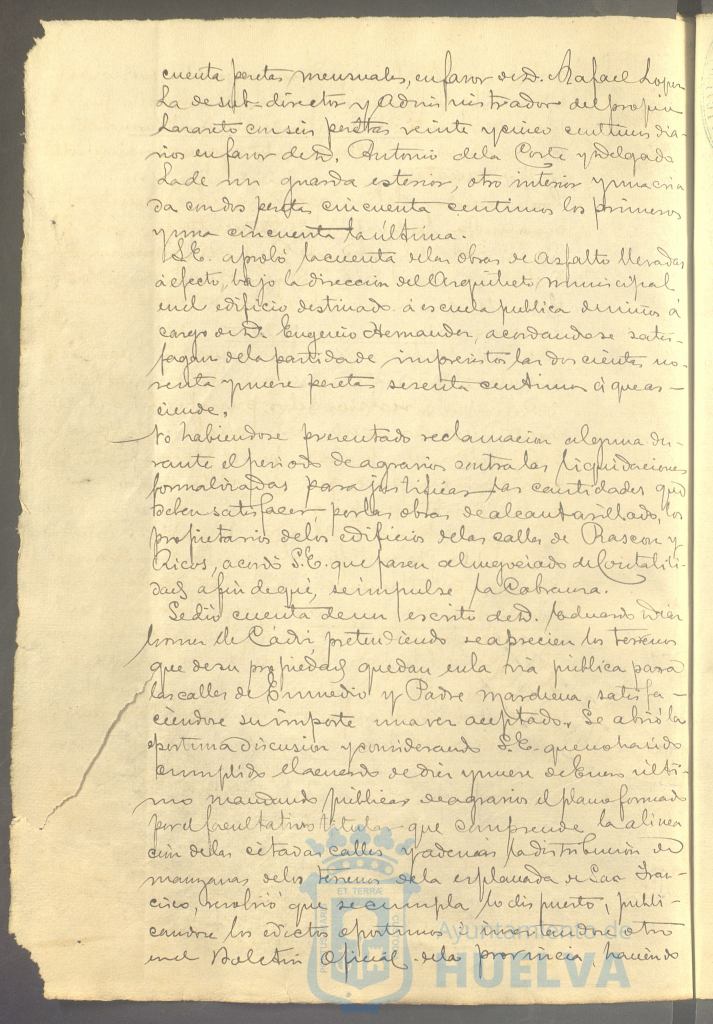 cuenta pesetas mensuales, en favor de D. Rafael Lopez
La de sub-director y Administrador del propio
Lazareto con seis pesetas veinte y cinco centimos dia-
rios en favor de D. Antonio de la Corte y Delgado
La de un guarda esterior, otro interior y una cria
da con dos pesetas cincuenta centimos los primeros
y una cincuenta la última.
S.E. aprobó la cuenta de las obras de asfalto llevadas
á efecto, bajo la direccion del Arquitecto municipal
en el edificio destinado á escuela publica de niños á
cargo de D. Eugenio Hernandez, acordandose satis-
fagan de la partida de imprevistos las dos cientas no-
venta y nueve pesetas sesenta centimos á que as-
ciende.
No habiendose presentado reclamacion alguna du-
rante el periodo de agravios contra las liquidaciones
formalizadas para justificar las cantidades que
deben satisfacer, por las obras de alcantarillado, los
propietarios de los edificios de las calles de Rascon y
Ricos, acordó S.E. que pasen al negociado de Contabili-
dad á fin de que, se impulse la Cobranza.
Se dió cuenta de un escrito de D. Eduardo Diaz
de Cádiz, pretendiendo se aprecien los terrenos
que de su propiedad quedan en la via pública para
las calles de Enmedio y Padre Marchena, satisfa-
ciendose su importe una vez aceptado. Se abrió la
oportuna discusion y considerando S.E. que no ha sido
cumplido el acuerdo de diez y nueve de Enero últi-
mo mandando publicar de agravios el plano formado
por el facultativo titular que comprende la alinea
cion de las citadas calles y ademas la distribucion de
manzanas de los terrenos de la esplanada de San Fran-
cisco, resolvió que se cumpla lo dispuesto, publi-
candose los edictos oportunos é insertandose otro
en el Boletin Oficial de la provincia, haciendo
ET TERRÆ
PORTUS MARIS
CUSTODIA
Ayuntamiento de
HUELVA